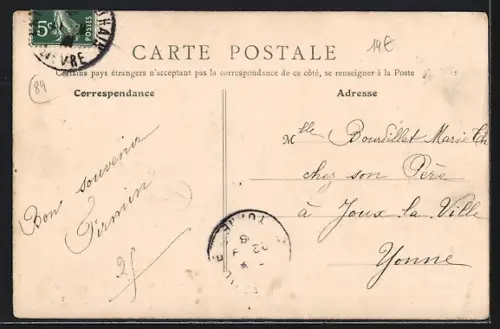 5c POSTES
14€
CARTE POSTALE
Certains pays étrangers n'acceptant pas la correspondance de ce côté, se renseigner à la Poste
89
Correspondance
Adresse
Bon souvenir
Firmin
Mlle Boursillat Marie Th
chez son Père
à Joux-la-Ville
Yonne